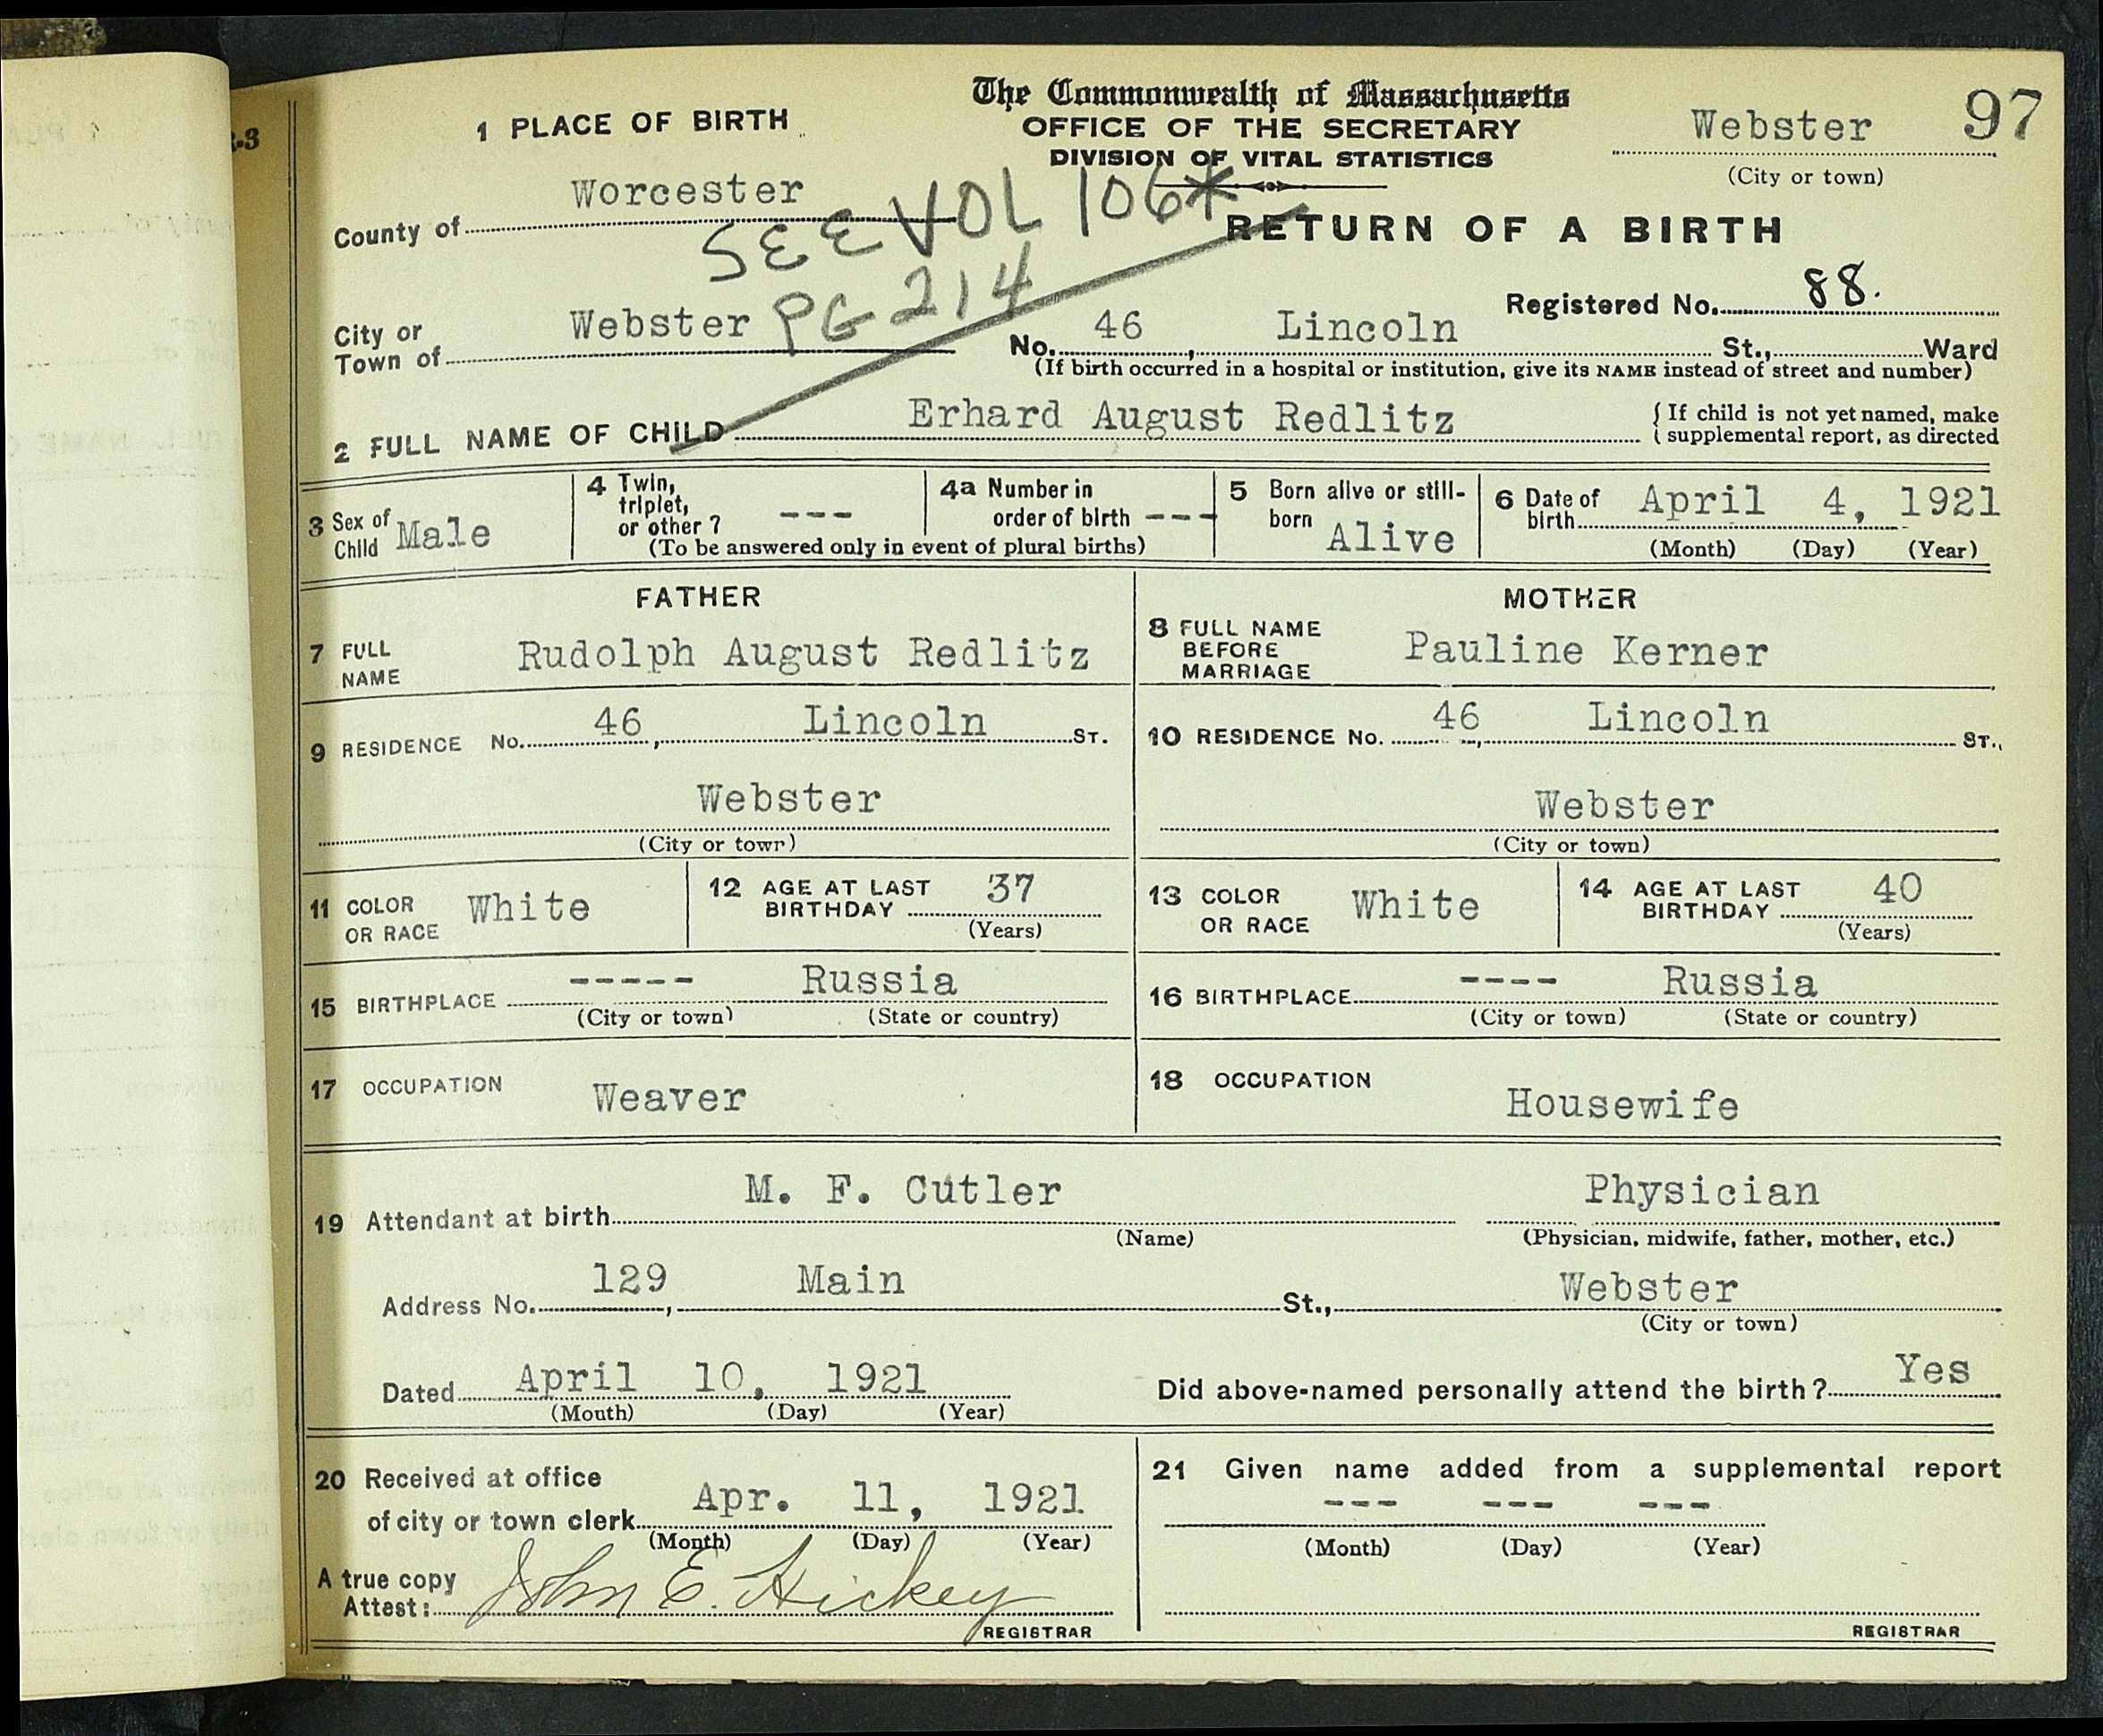 The Commonwealth of Massachusetts
OFFICE OF THE SECRETARY
DIVISION OF VITAL STATISTICS
Webster 97
(City or town)
1 PLACE OF BIRTH
-3
County of Worcester
SEE VOL 106*
PG 214
RETURN OF A BIRTH
Registered No. 88.
City or Town of Webster
No. 46, Lincoln St., Ward
(If birth occurred in a hospital or institution, give its NAME instead of street and number)
2 FULL NAME OF CHILD Erhard August Redlitz
{ If child is not yet named, make
{ supplemental report, as directed
3 Sex of Child Male
4 Twin, triplet, or other? ---
4a Number in order of birth ---
(To be answered only in event of plural births)
5 Born alive or still-born Alive
6 Date of birth April 4, 1921
(Month) (Day) (Year)
FATHER
MOTHER
7 FULL NAME Rudolph August Redlitz
8 FULL NAME BEFORE MARRIAGE Pauline Kerner
9 RESIDENCE No. 46, Lincoln ST.
10 RESIDENCE No. 46, Lincoln ST.,
Webster
Webster
(City or town)
(City or town)
11 COLOR OR RACE White
12 AGE AT LAST BIRTHDAY 37
(Years)
13 COLOR OR RACE White
14 AGE AT LAST BIRTHDAY 40
(Years)
15 BIRTHPLACE ----- Russia
(City or town) (State or country)
16 BIRTHPLACE ---- Russia
(City or town) (State or country)
17 OCCUPATION Weaver
18 OCCUPATION Housewife
19 Attendant at birth M. F. Cutler Physician
(Name) (Physician, midwife, father, mother, etc.)
Address No. 129, Main St., Webster
(City or town)
Dated April 10, 1921
(Month) (Day) (Year)
Did above-named personally attend the birth? Yes
20 Received at office
of city or town clerk Apr. 11, 1921
(Month) (Day) (Year)
A true copy
Attest: John E. Hickey
REGISTRAR
21 Given name added from a supplemental report
--- --- ---
(Month) (Day) (Year)
REGISTRAR